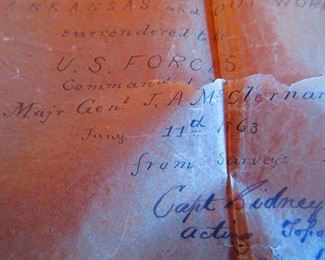 ARKANSAS and OUT WOR
surrendered to the
U.S. FORCES
Command'd
Maj'r Gen'l J.A McClernan
Jany 11th 1863
from surveys
Capt Sidney
acting Topo